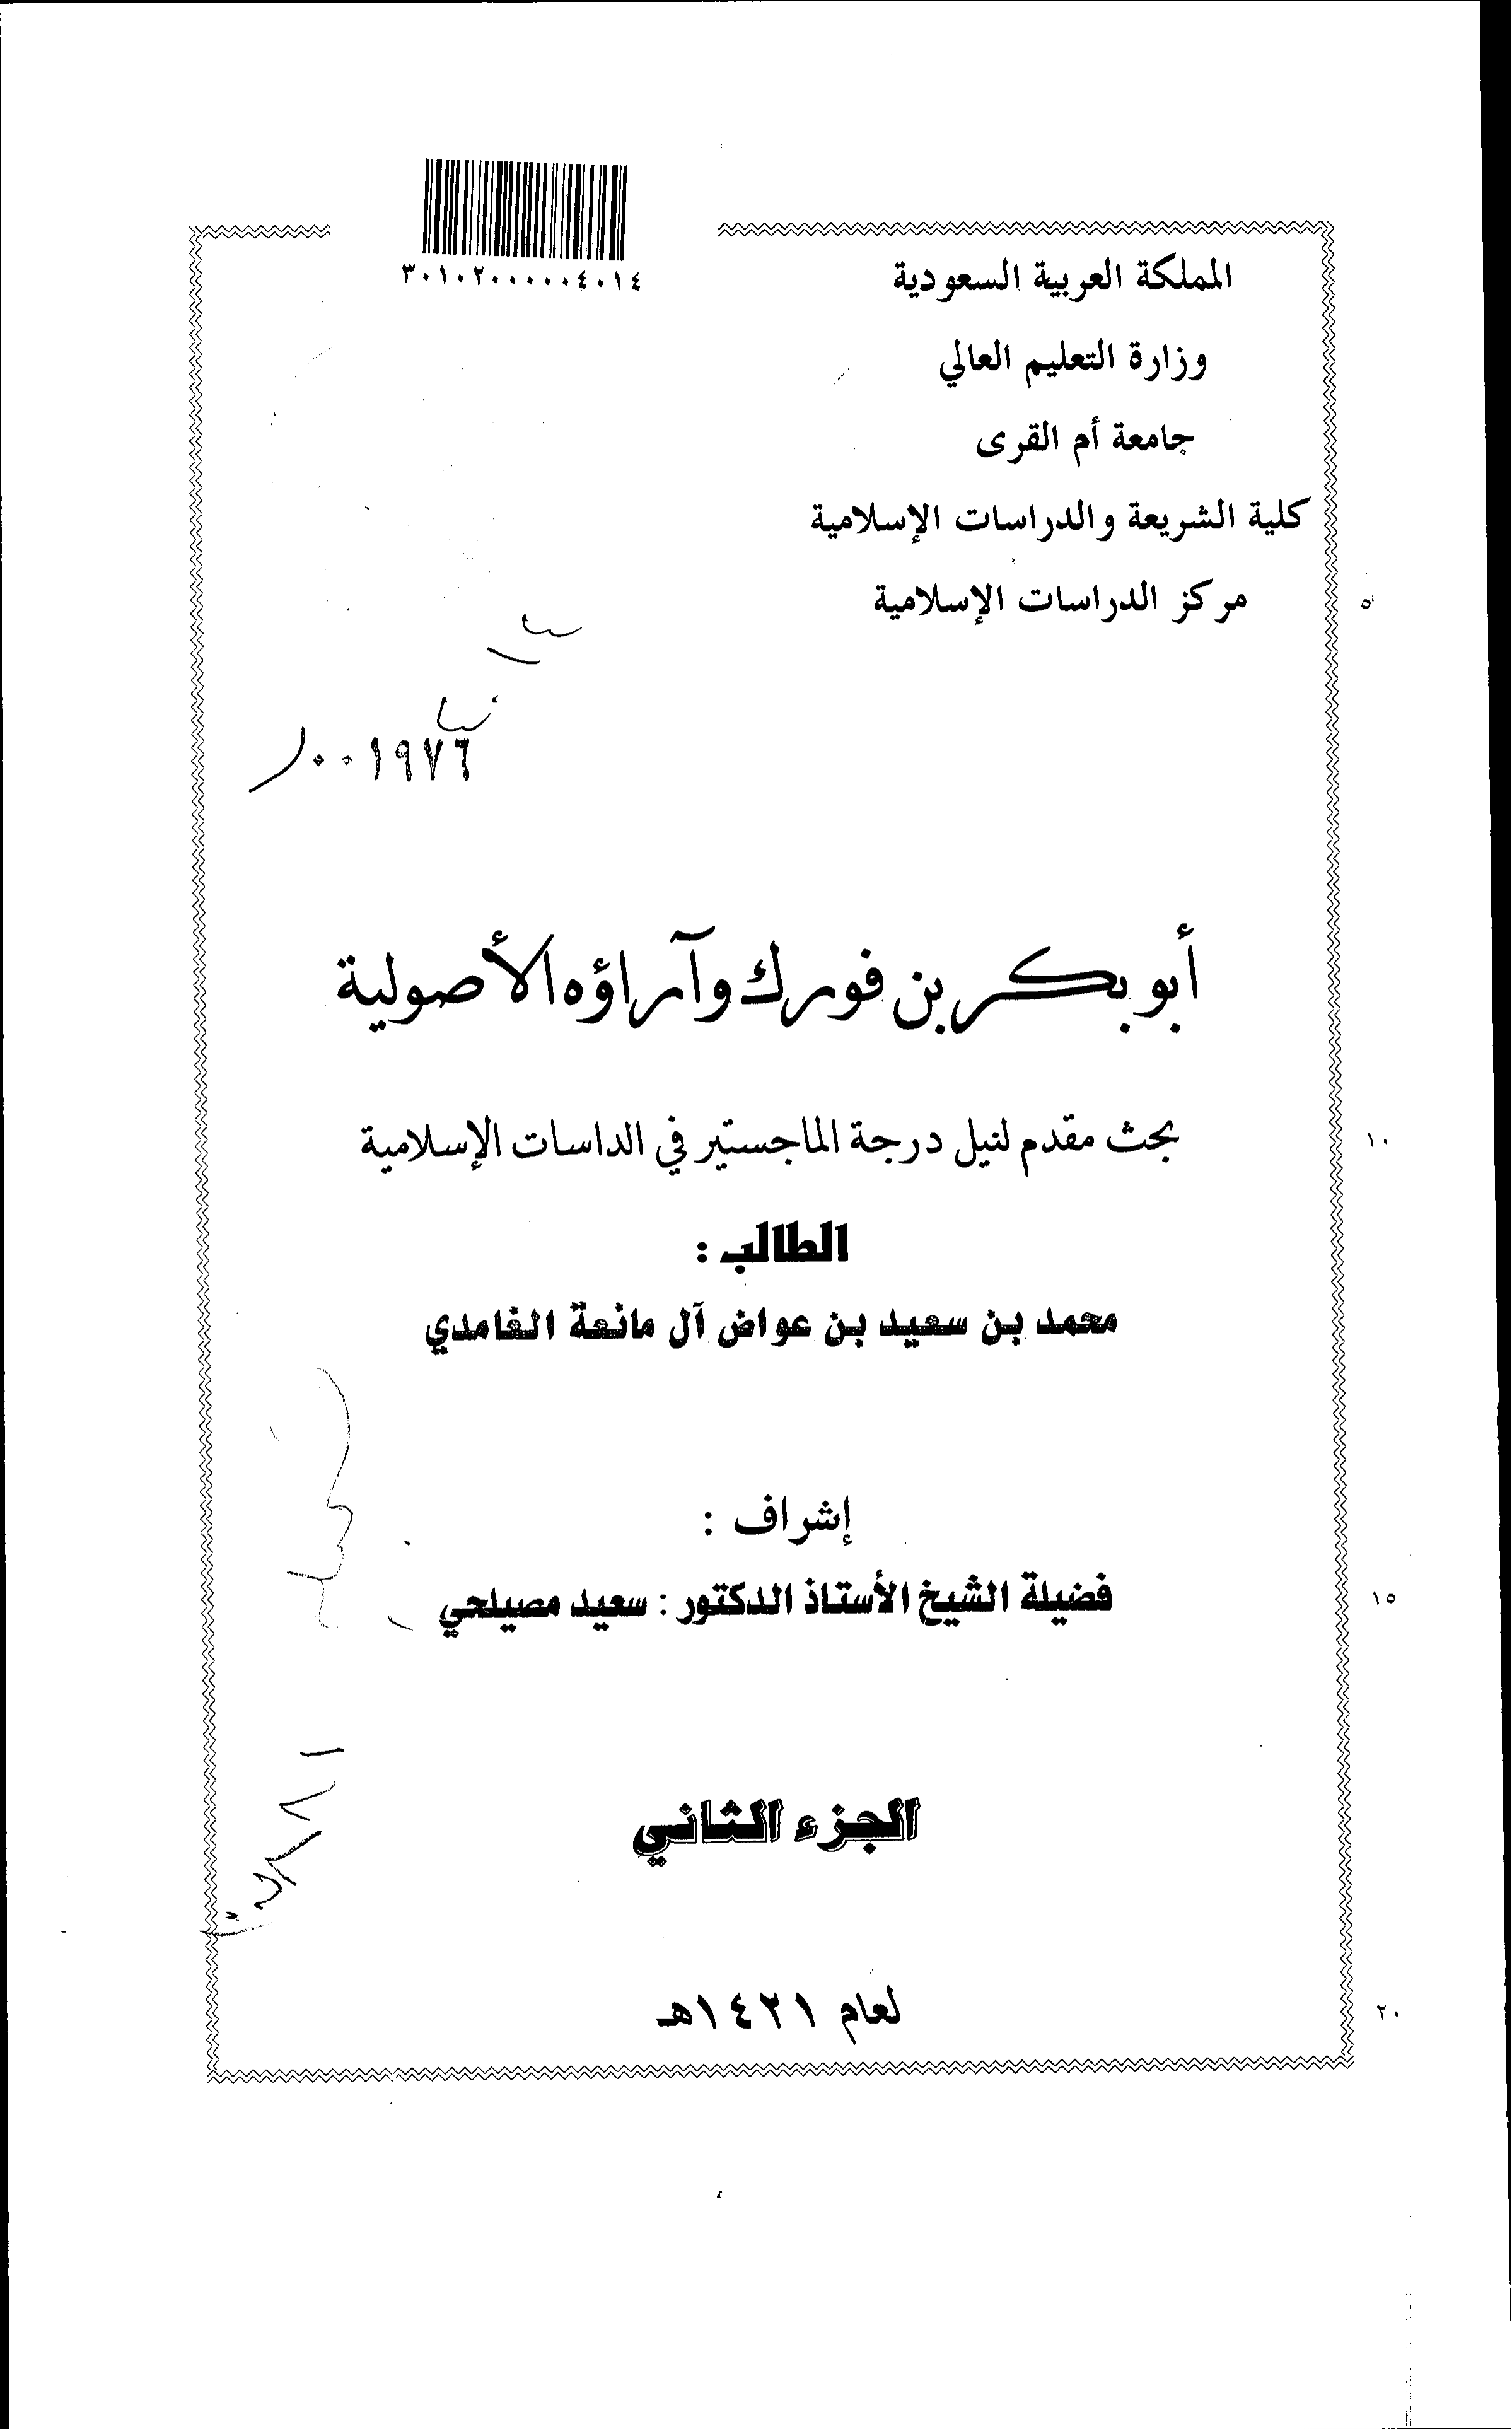 ٣٠١٠٢٠٠٠٠٠٤٠١٤
المملكة العربية السعودية
وزارة التعليم العالي
جامعة أم القرى
كلية الشريعة والدراسات الإسلامية
مركز الدراسات الإسلامية
٥
٠٠١٩٧٦
أبو بكر بن فورك وآراؤه الأصولية
بحث مقدم لنيل درجة الماجستير في الداسات الإسلامية
١٠
الطالب :
محمد بن سعيد بن عواض آل مانعة الغامدي
إشراف :
فضيلة الشيخ الأستاذ الدكتور : سعيد مصيلحي
١٥
الجزء الثاني
لعام ١٤٢١هـ
٢٠